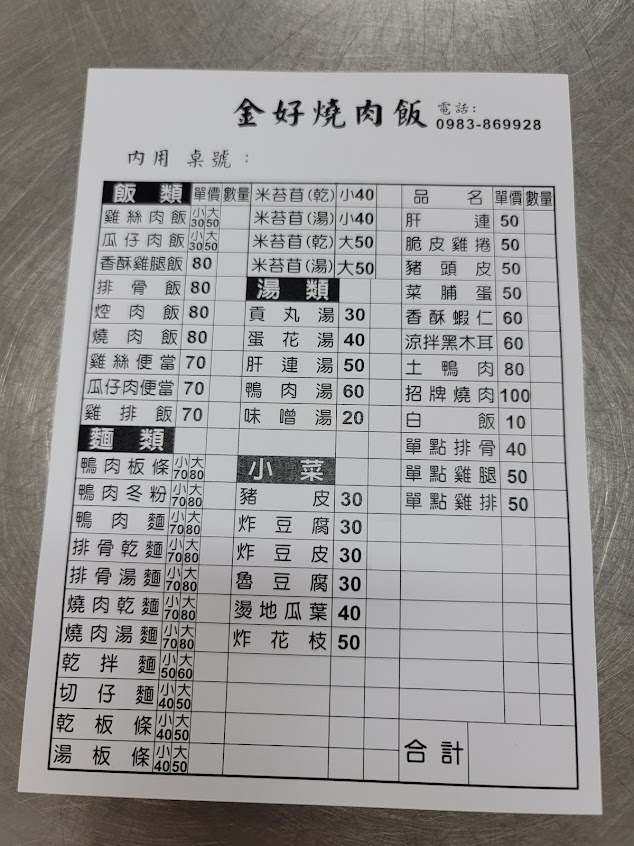 金好燒肉飯 電話:
0983-869928
內用 桌號：
飯類 單價 數量
雞絲肉飯 小30 大50
瓜仔肉飯 小30 大50
香酥雞腿飯 80
排骨飯 80
焢肉飯 80
燒肉飯 80
雞絲便當 70
瓜仔肉便當 70
雞排飯 70
麵類
鴨肉板條 小70 大80
鴨肉冬粉 小70 大80
鴨肉麵 小70 大80
排骨乾麵 小70 大80
排骨湯麵 小70 大80
燒肉乾麵 小70 大80
燒肉湯麵 小70 大80
乾拌麵 小50 大60
切仔麵 小40 大50
乾板條 小40 大50
湯板條 小40 大50
米苔苜(乾) 小40
米苔苜(湯) 小40
米苔苜(乾) 大50
米苔苜(湯) 大50
湯類
貢丸湯 30
蛋花湯 40
肝連湯 50
鴨肉湯 60
味噌湯 20
小菜
豬皮 30
炸豆腐 30
炸豆皮 30
魯豆腐 30
燙地瓜葉 40
炸花枝 50
品名 單價 數量
肝連 50
脆皮雞捲 50
豬頭皮 50
菜脯蛋 50
香酥蝦仁 60
涼拌黑木耳 60
土鴨肉 80
招牌燒肉 100
白飯 10
單點排骨 40
單點雞腿 50
單點雞排 50
合計